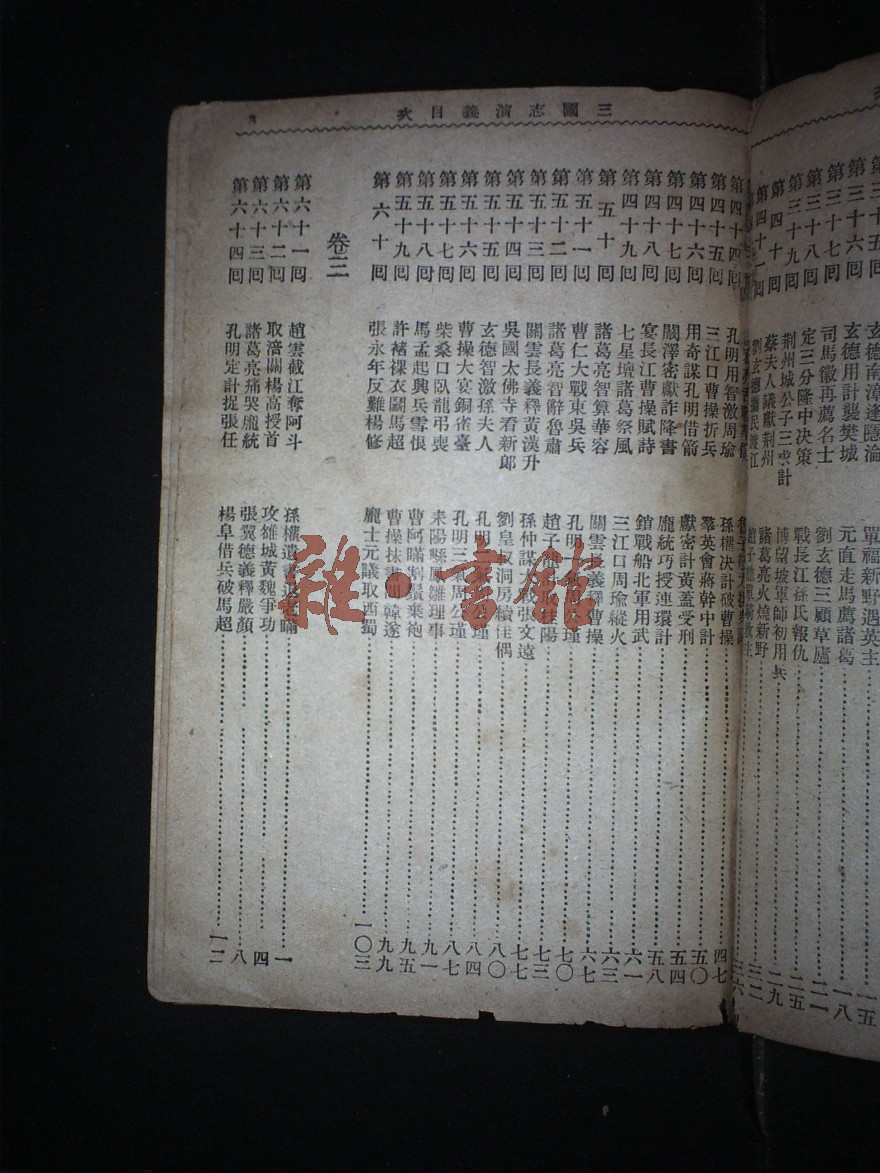 三國志演義目次
第三十五回 玄德南漳逢隱淪 單福新野遇英主 一五
第三十六回 玄德用計襲樊城 元直走馬薦諸葛 一八
第三十七回 司馬徽再薦名士 劉玄德三顧草廬 二一
第三十八回 定三分隆中決策 戰長江孫氏報仇 二五
第三十九回 荆州城公子三求計 博望坡軍師初用兵 二九
第四十回 蔡夫人議獻荆州 諸葛亮火燒新野 三二
第四十一回 劉玄德攜民渡江 趙子龍單騎救主 三六
第四十四回 孔明用智激周瑜 孫權決計破曹操 四七
第四十五回 三江口曹操折兵 羣英會蔣幹中計 五〇
第四十六回 用奇謀孔明借箭 獻密計黃蓋受刑 五四
第四十七回 闞澤密獻詐降書 龐統巧授連環計 五八
第四十八回 宴長江曹操賦詩 鎖戰船北軍用武 六一
第四十九回 七星壇諸葛祭風 三江口周瑜縱火 六三
第五十回 諸葛亮智算華容 關雲長義釋曹操 六七
第五十一回 曹仁大戰東吳兵 孔明一氣周公瑾 七〇
第五十二回 諸葛亮智辭魯肅 趙子龍計取桂陽 七三
第五十三回 關雲長義釋黃漢升 孫仲謀大戰張文遠 七七
第五十四回 吳國太佛寺看新郎 劉皇叔洞房續佳偶 八〇
第五十五回 玄德智激孫夫人 孔明二氣周公瑾 八四
第五十六回 曹操大宴銅雀臺 孔明三氣周公瑾 八七
第五十七回 柴桑口臥龍弔喪 耒陽縣鳳雛理事 九一
第五十八回 馬孟起興兵雪恨 曹阿瞞割鬚棄袍 九五
第五十九回 許褚裸衣鬬馬超 曹操抹書間韓遂 九九
第六十回 張永年反難楊修 龐士元議取西蜀 一〇三
卷三
第六十一回 趙雲截江奪阿斗 孫權遺書退老瞞 一
第六十二回 取涪關楊高授首 攻雒城黃魏爭功 四
第六十三回 諸葛亮痛哭龐統 張翼德義釋嚴顏 八
第六十四回 孔明定計捉張任 楊阜借兵破馬超 一二
雜·書館